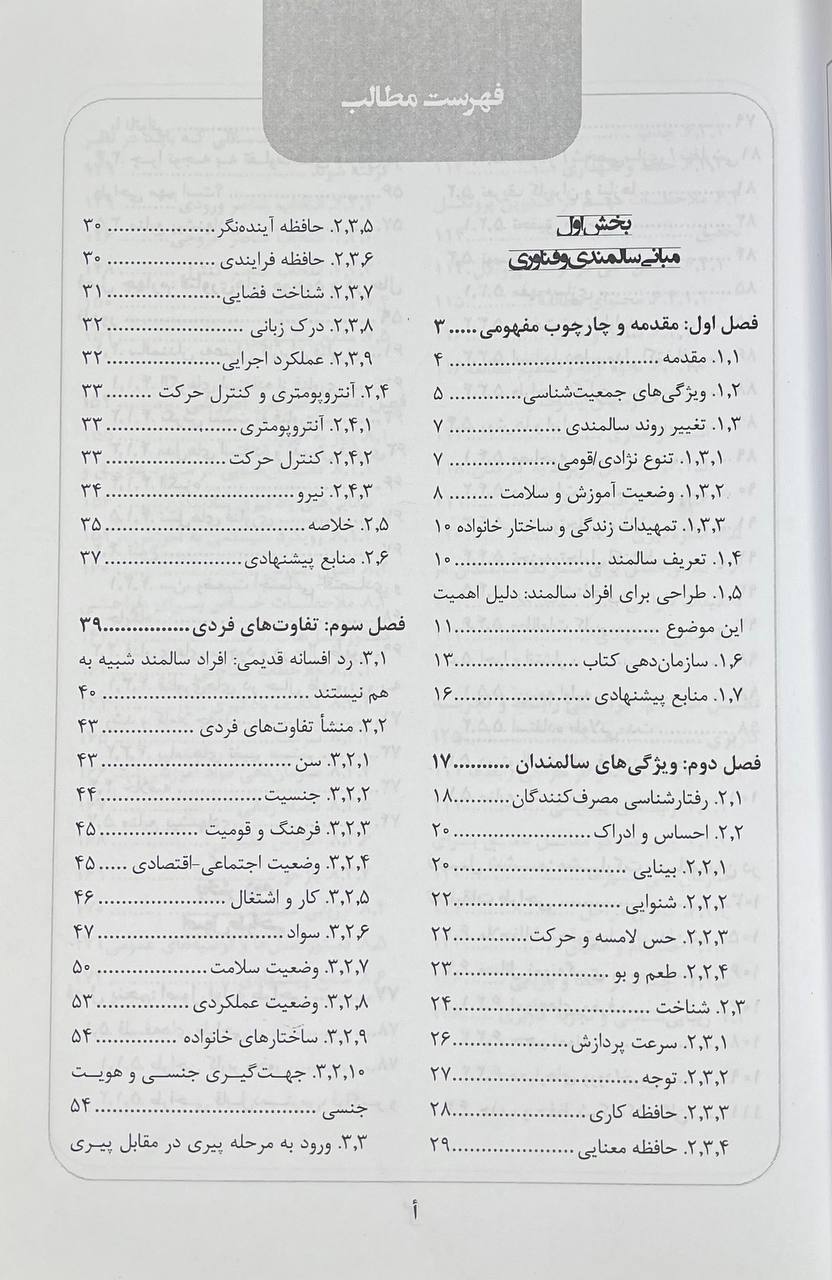 فهرست مطالب
بخش اول
مبانی سالمندی و فناوری
فصل اول: مقدمه و چارچوب مفهومی ..... ۳
۱,۱. مقدمه ................................... ۴
۱,۲. ویژگی‌های جمعیت‌شناسی ............. ۵
۱,۳. تغییر روند سالمندی .................... ۷
۱,۳,۱. تنوع نژادی/قومی .................... ۷
۱,۳,۲. وضعیت آموزش و سلامت ........ ۸
۱,۳,۳. تمهیدات زندگی و ساختار خانواده ۱۰
۱,۴. تعریف سالمند ........................ ۱۰
۱,۵. طراحی برای افراد سالمند: دلیل اهمیت
این موضوع ................................. ۱۱
۱,۶. سازمان‌دهی کتاب ..................... ۱۳
۱,۷. منابع پیشنهادی ....................... ۱۶
فصل دوم: ویژگی‌های سالمندان .......... ۱۷
۲,۱. رفتارشناسی مصرف‌کنندگان .......... ۱۸
۲,۲. احساس و ادراک ....................... ۲۰
۲,۲,۱. بینایی ............................. ۲۰
۲,۲,۲. شنوایی ............................ ۲۲
۲,۲,۳. حس لامسه و حرکت ............. ۲۲
۲,۲,۴. طعم و بو .......................... ۲۳
۲,۳. شناخت ................................ ۲۴
۲,۳,۱. سرعت پردازش .................... ۲۶
۲,۳,۲. توجه ............................... ۲۷
۲,۳,۳. حافظه کاری ....................... ۲۸
۲,۳,۴. حافظه معنایی ..................... ۲۹
۲,۳,۵. حافظه آینده‌نگر ................... ۳۰
۲,۳,۶. حافظه فرایندی .................... ۳۰
۲,۳,۷. شناخت فضایی .................... ۳۱
۲,۳,۸. درک زبانی ........................ ۳۲
۲,۳,۹. عملکرد اجرایی .................... ۳۲
۲,۴. آنتروپومتری و کنترل حرکت ........ ۳۳
۲,۴,۱. آنتروپومتری ....................... ۳۳
۲,۴,۲. کنترل حرکت ..................... ۳۳
۲,۴,۳. نیرو ............................... ۳۴
۲,۵. خلاصه ................................. ۳۵
۲,۶. منابع پیشنهادی ....................... ۳۷
فصل سوم: تفاوت‌های فردی ............... ۳۹
۳,۱. رد افسانه قدیمی: افراد سالمند شبیه به
هم نیستند .................................. ۴۰
۳,۲. منشأ تفاوت‌های فردی ................ ۴۳
۳,۲,۱. سن ................................ ۴۳
۳,۲,۲. جنسیت ............................ ۴۴
۳,۲,۳. فرهنگ و قومیت ................. ۴۵
۳,۲,۴. وضعیت اجتماعی-اقتصادی ..... ۴۵
۳,۲,۵. کار و اشتغال ...................... ۴۶
۳,۲,۶. سواد ............................... ۴۷
۳,۲,۷. وضعیت سلامت ................... ۵۰
۳,۲,۸. وضعیت عملکردی ................ ۵۳
۳,۲,۹. ساختارهای خانواده .............. ۵۴
۳,۲,۱۰. جهت‌گیری جنسی و هویت
جنسی ..................................... ۵۴
۳,۳. ورود به مرحله پیری در مقابل پیری
أ